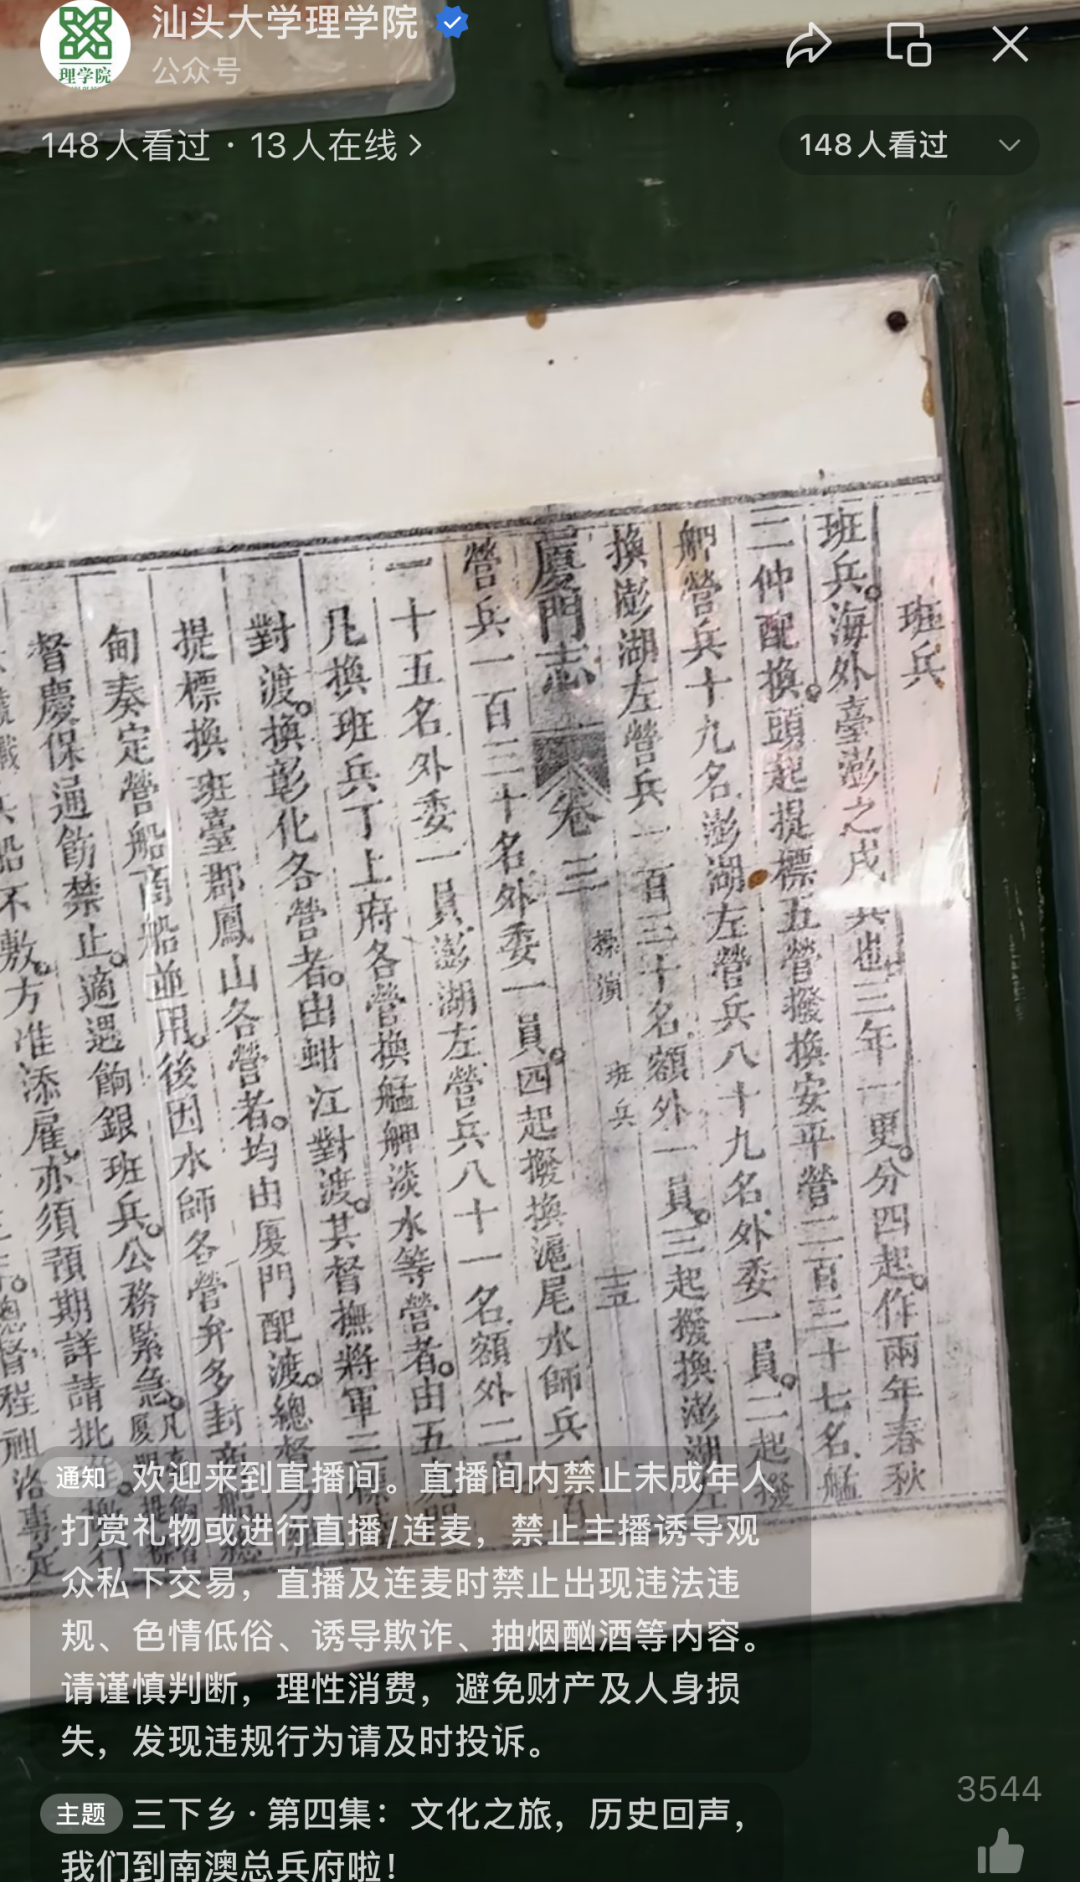 汕头大学理学院
公众号
理学院
148人看过 · 13人在线 >
148人看过
班兵
班兵。海外臺澎之戍兵也三年一更。分四起。作兩年春秋
二仲配換。頭起提標五營撥換安平營二百三十七名艋
舺營兵十九名澎湖左營兵八十九名外委一員。二起撥
換澎湖左營兵一百三十名額外一員。三起撥換澎湖左
廈門志 卷三 操演 班兵 十五
營兵一百三十名外委一員。四起撥換滬尾水師兵一百
一十五名外委一員澎湖左營兵八十一名額外二員
凡換班兵丁上府各營換艋舺淡水等營者。由五
對渡。換彰化各營者。由蚶江對渡。其督撫將軍三標
提標換班臺郡鳳山各營者。均由廈門配渡。總督方
甸奏定營船商船並用。後因水師各營弁多封商船
督慶保通飭禁止。適遇餉銀班兵。公務緊急。凡
船不敷。方准添雇。亦須預期詳請批
督程祖洛專定
通知 欢迎来到直播间。直播间内禁止未成年人
打赏礼物或进行直播/连麦，禁止主播诱导观
众私下交易，直播及连麦时禁止出现违法违
规、色情低俗、诱导欺诈、抽烟酗酒等内容。
请谨慎判断，理性消费，避免财产及人身损
失，发现违规行为请及时投诉。
3544
主题 三下乡·第四集：文化之旅，历史回声，
我们到南澳总兵府啦！